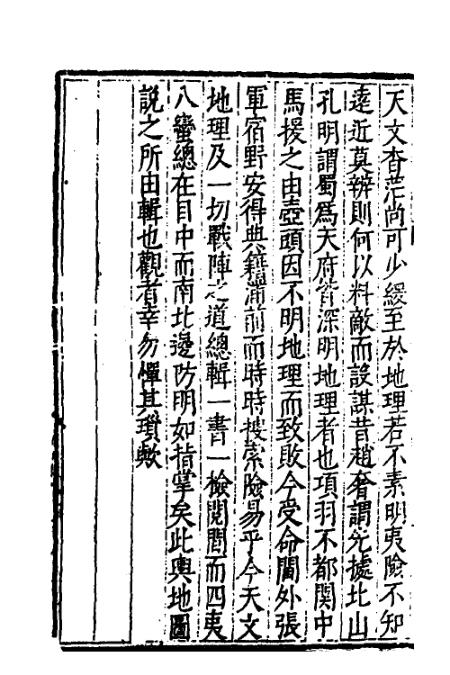 天文杳茫尚可少緩至於地理若不素明夷險不知
遠近莫辨則何以料敵而設謀昔趙奢謂先據北山
孔明謂蜀爲天府皆深明地理者也項羽不都関中
馬援之由壺頭因不明地理而致敗今受命閫外張
軍宿野安得典籍滿前而時時搜索險易乎今天文
地理及一切戰陣之道總輯一書一檢閱間而四夷
八蠻總在目中而南北邊防明如指掌矣此輿地圖
說之所由輯也觀者幸勿憚其瑣歟